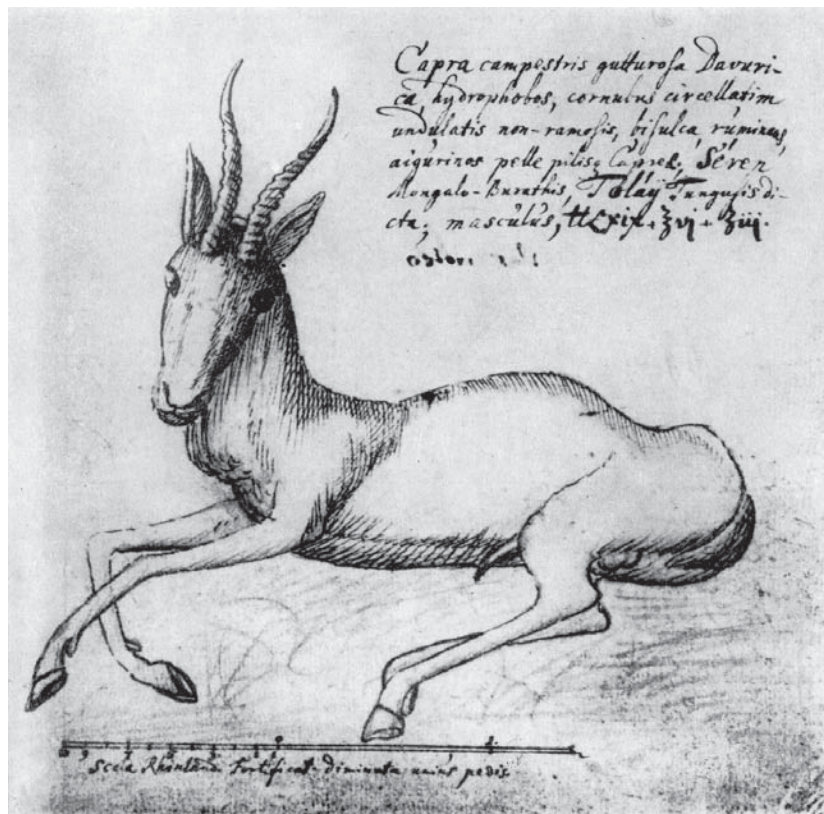 Capra campestris gutturosa Davuri-
ca, hydrophobos, cornubus circellatim
undulatis non-ramosis, bisulca, ruminans,
pelle pilisq Capreæ, Seren
Mongalo-Burathis, Tolay Tungusis di-
cta; masculus,
Scala Rhenland Fortificat. diminuta unius pedis